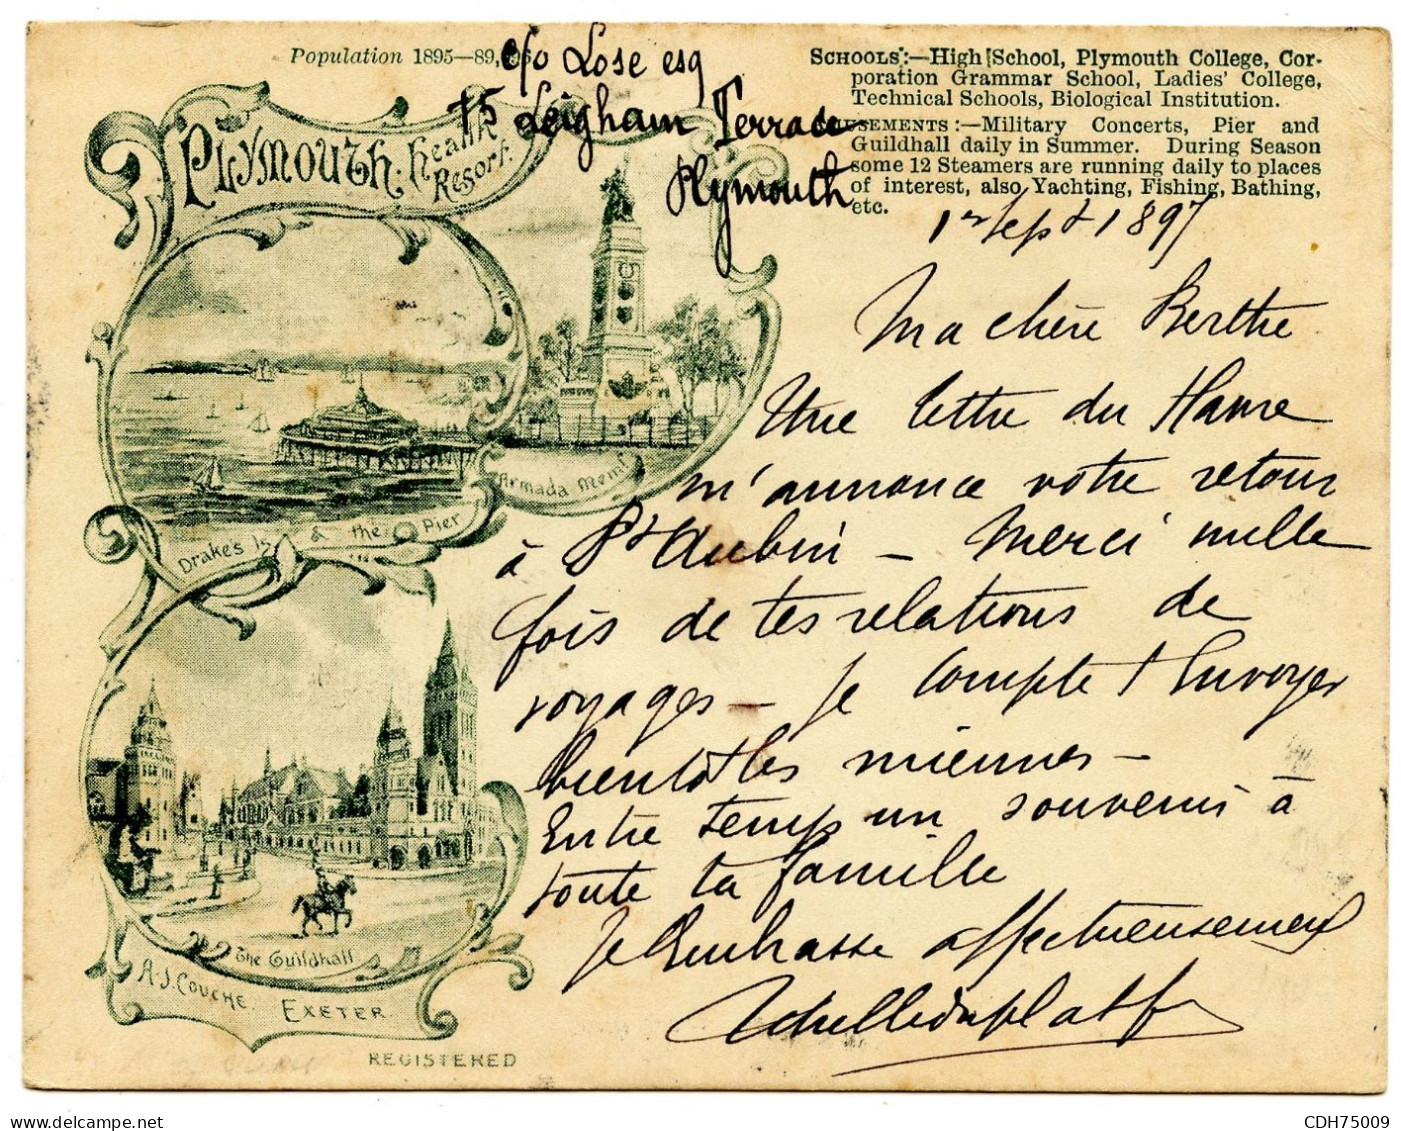 Population 1895—89,
c/o Lose esq
75 Leigham Terrace
Plymouth
SCHOOLS:—High School, Plymouth College, Cor-
poration Grammar School, Ladies' College,
Technical Schools, Biological Institution.
AMUSEMENTS:—Military Concerts, Pier and
Guildhall daily in Summer. During Season
some 12 Steamers are running daily to places
of interest, also Yachting, Fishing, Bathing,
etc.
PLYMOUTH. Health
Resort.
Armada Meml.
Drake's Is & the Pier
The Guildhall
A.J. COUCHE. EXETER
REGISTERED
1er Sept 1897
Ma chère Berthe
Une lettre du Havre
m'annonce votre retour
à St Aubin — Merci mille
fois de tes relations de
voyages — Je compte t'Envoyer
bientôt les miennes —
Entre temps un souvenir à
toute ta famille
Je t'Embrasse affectueusement
CDH75009